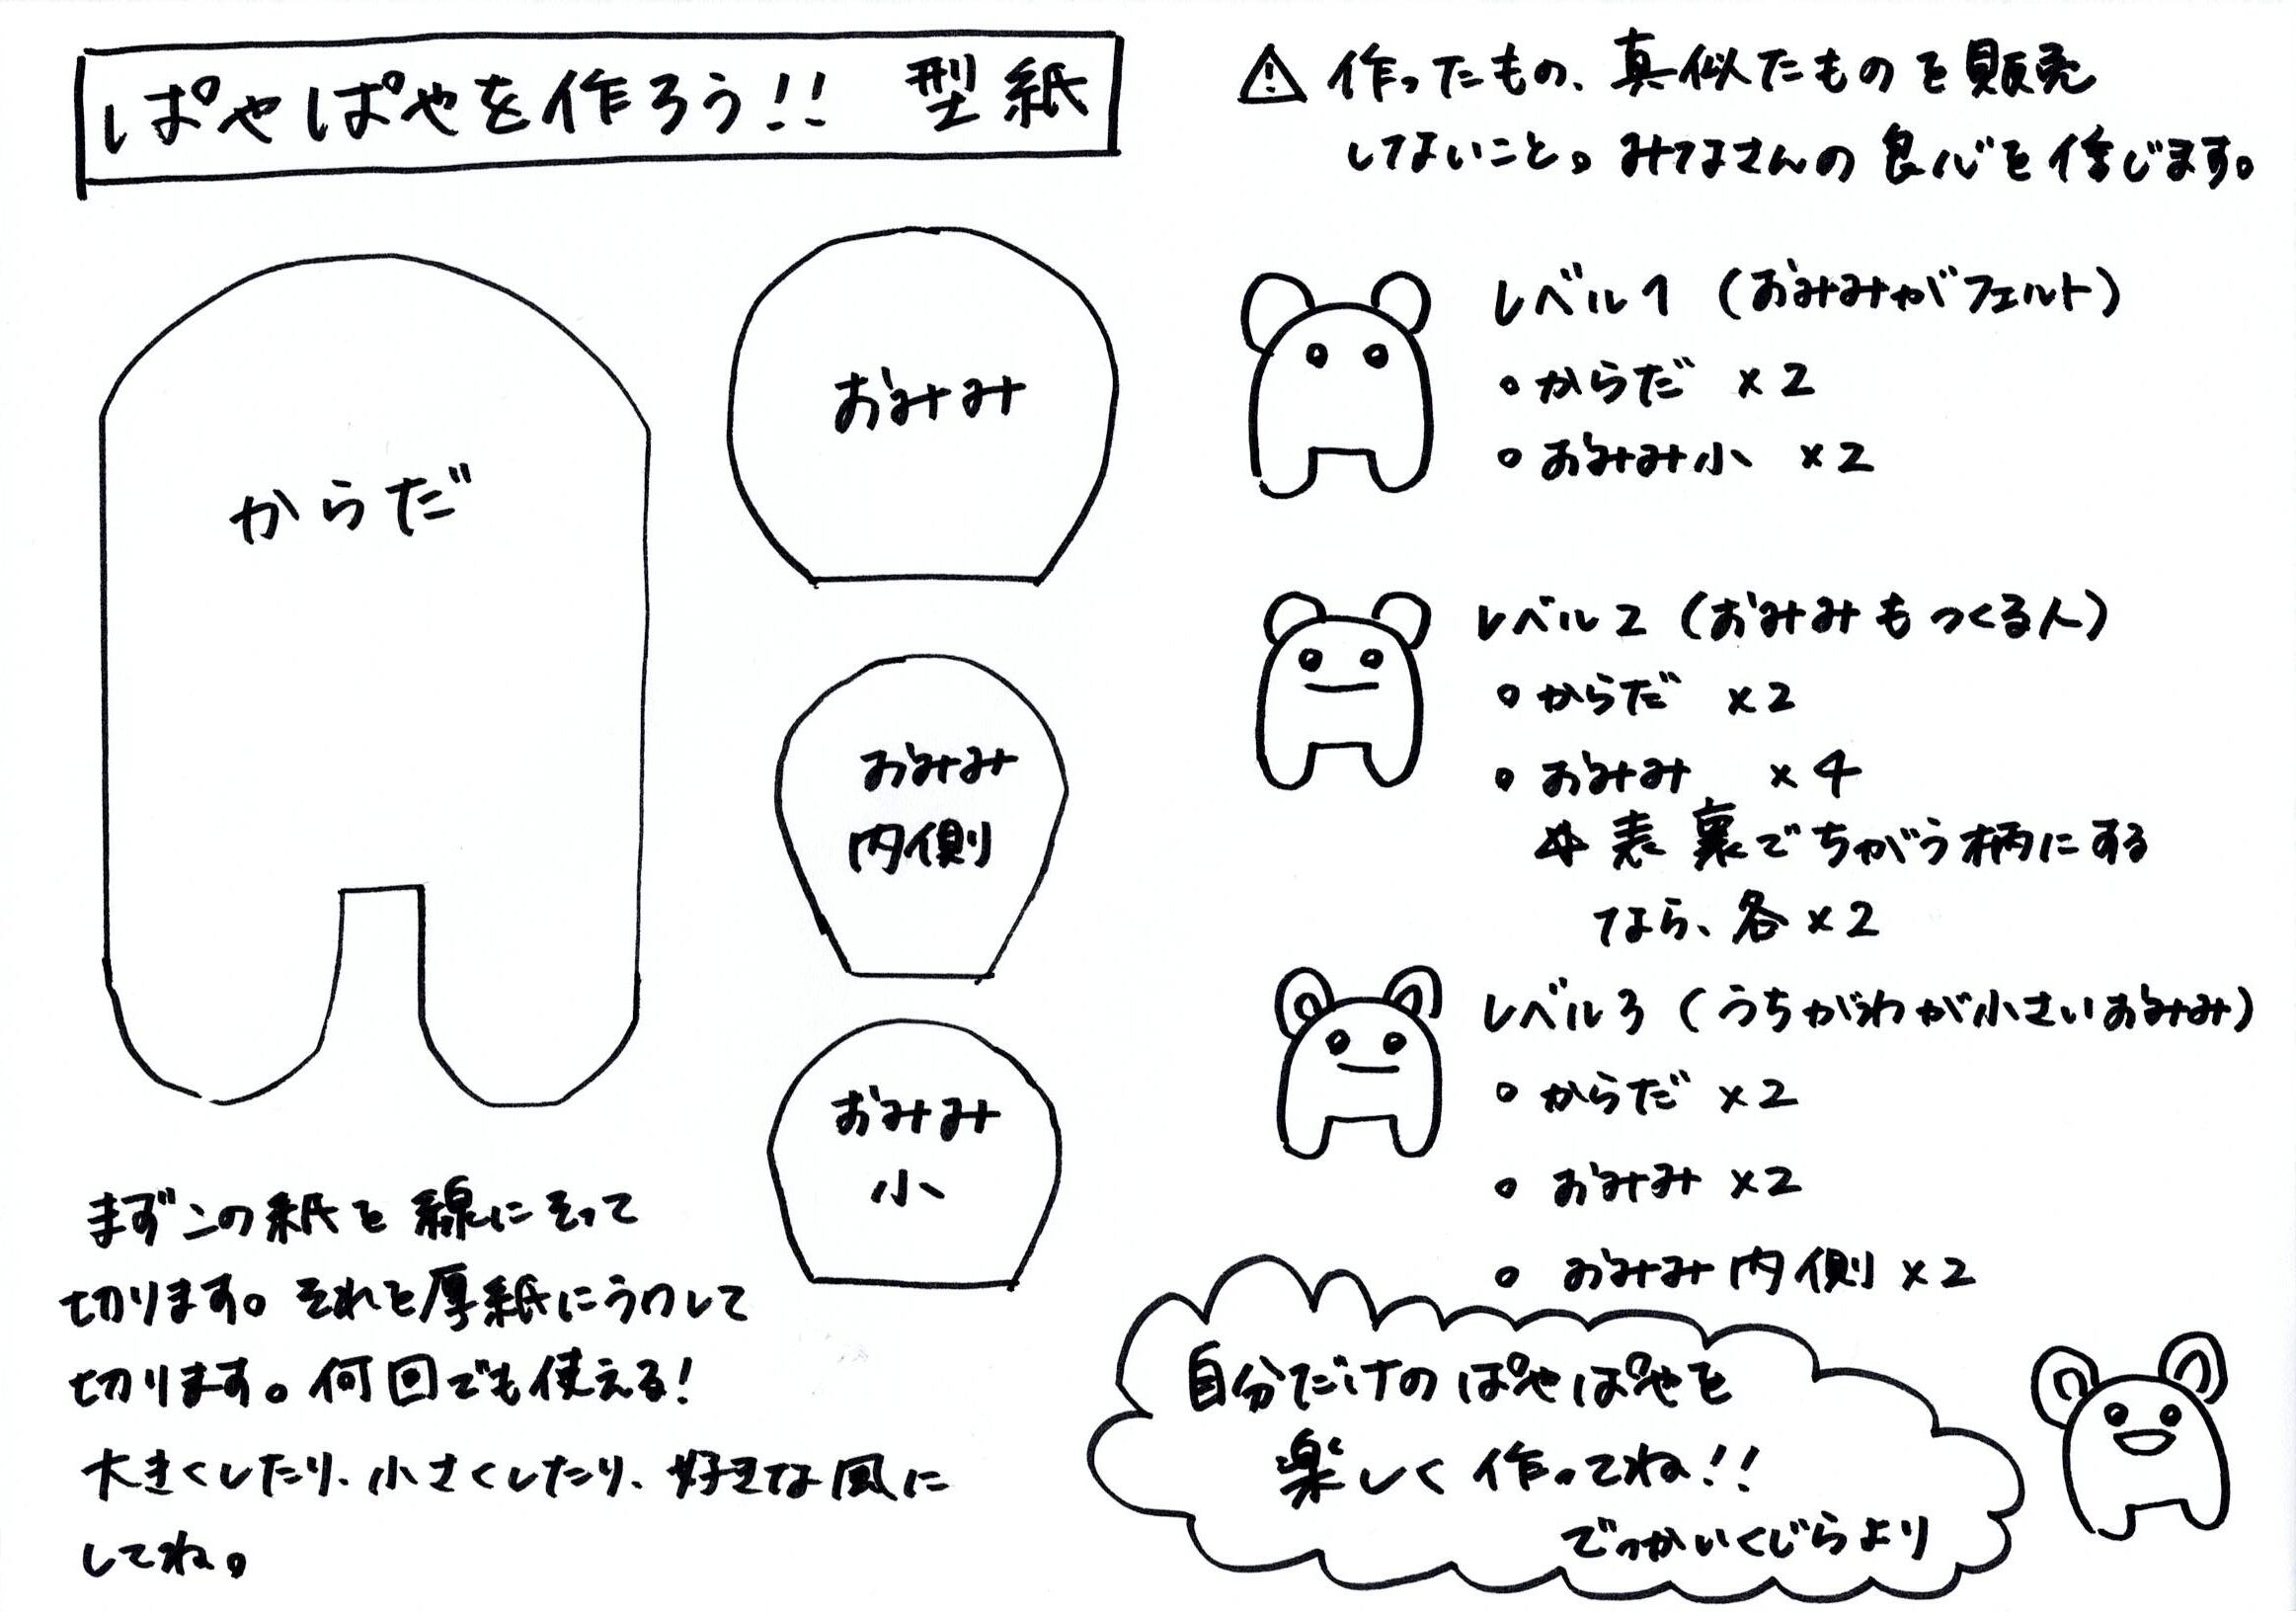 ぱやぱやを作ろう!! 型紙
⚠ 作ったもの、真似たものを販売
しないこと。みなさんの良心を信じます。
からだ
おみみ
おみみ
内側
おみみ
小
まずこの紙を線にそって
切ります。それを厚紙にうつして
切ります。何回でも使える!
大きくしたり、小さくしたり、好きな風に
してね。
レベル1 (おみみがフェルト)
。からだ ×2
。おみみ小 ×2
レベル2 (おみみもつくる人)
。からだ ×2
。おみみ ×4
*表裏でちがう柄にする
なら、各×2
レベル3 (うちがわが小さいおみみ)
。からだ ×2
。おみみ ×2
。おみみ内側 ×2
自分だけのぱやぱやを
楽しく作ってね!!
でっかいくじらより